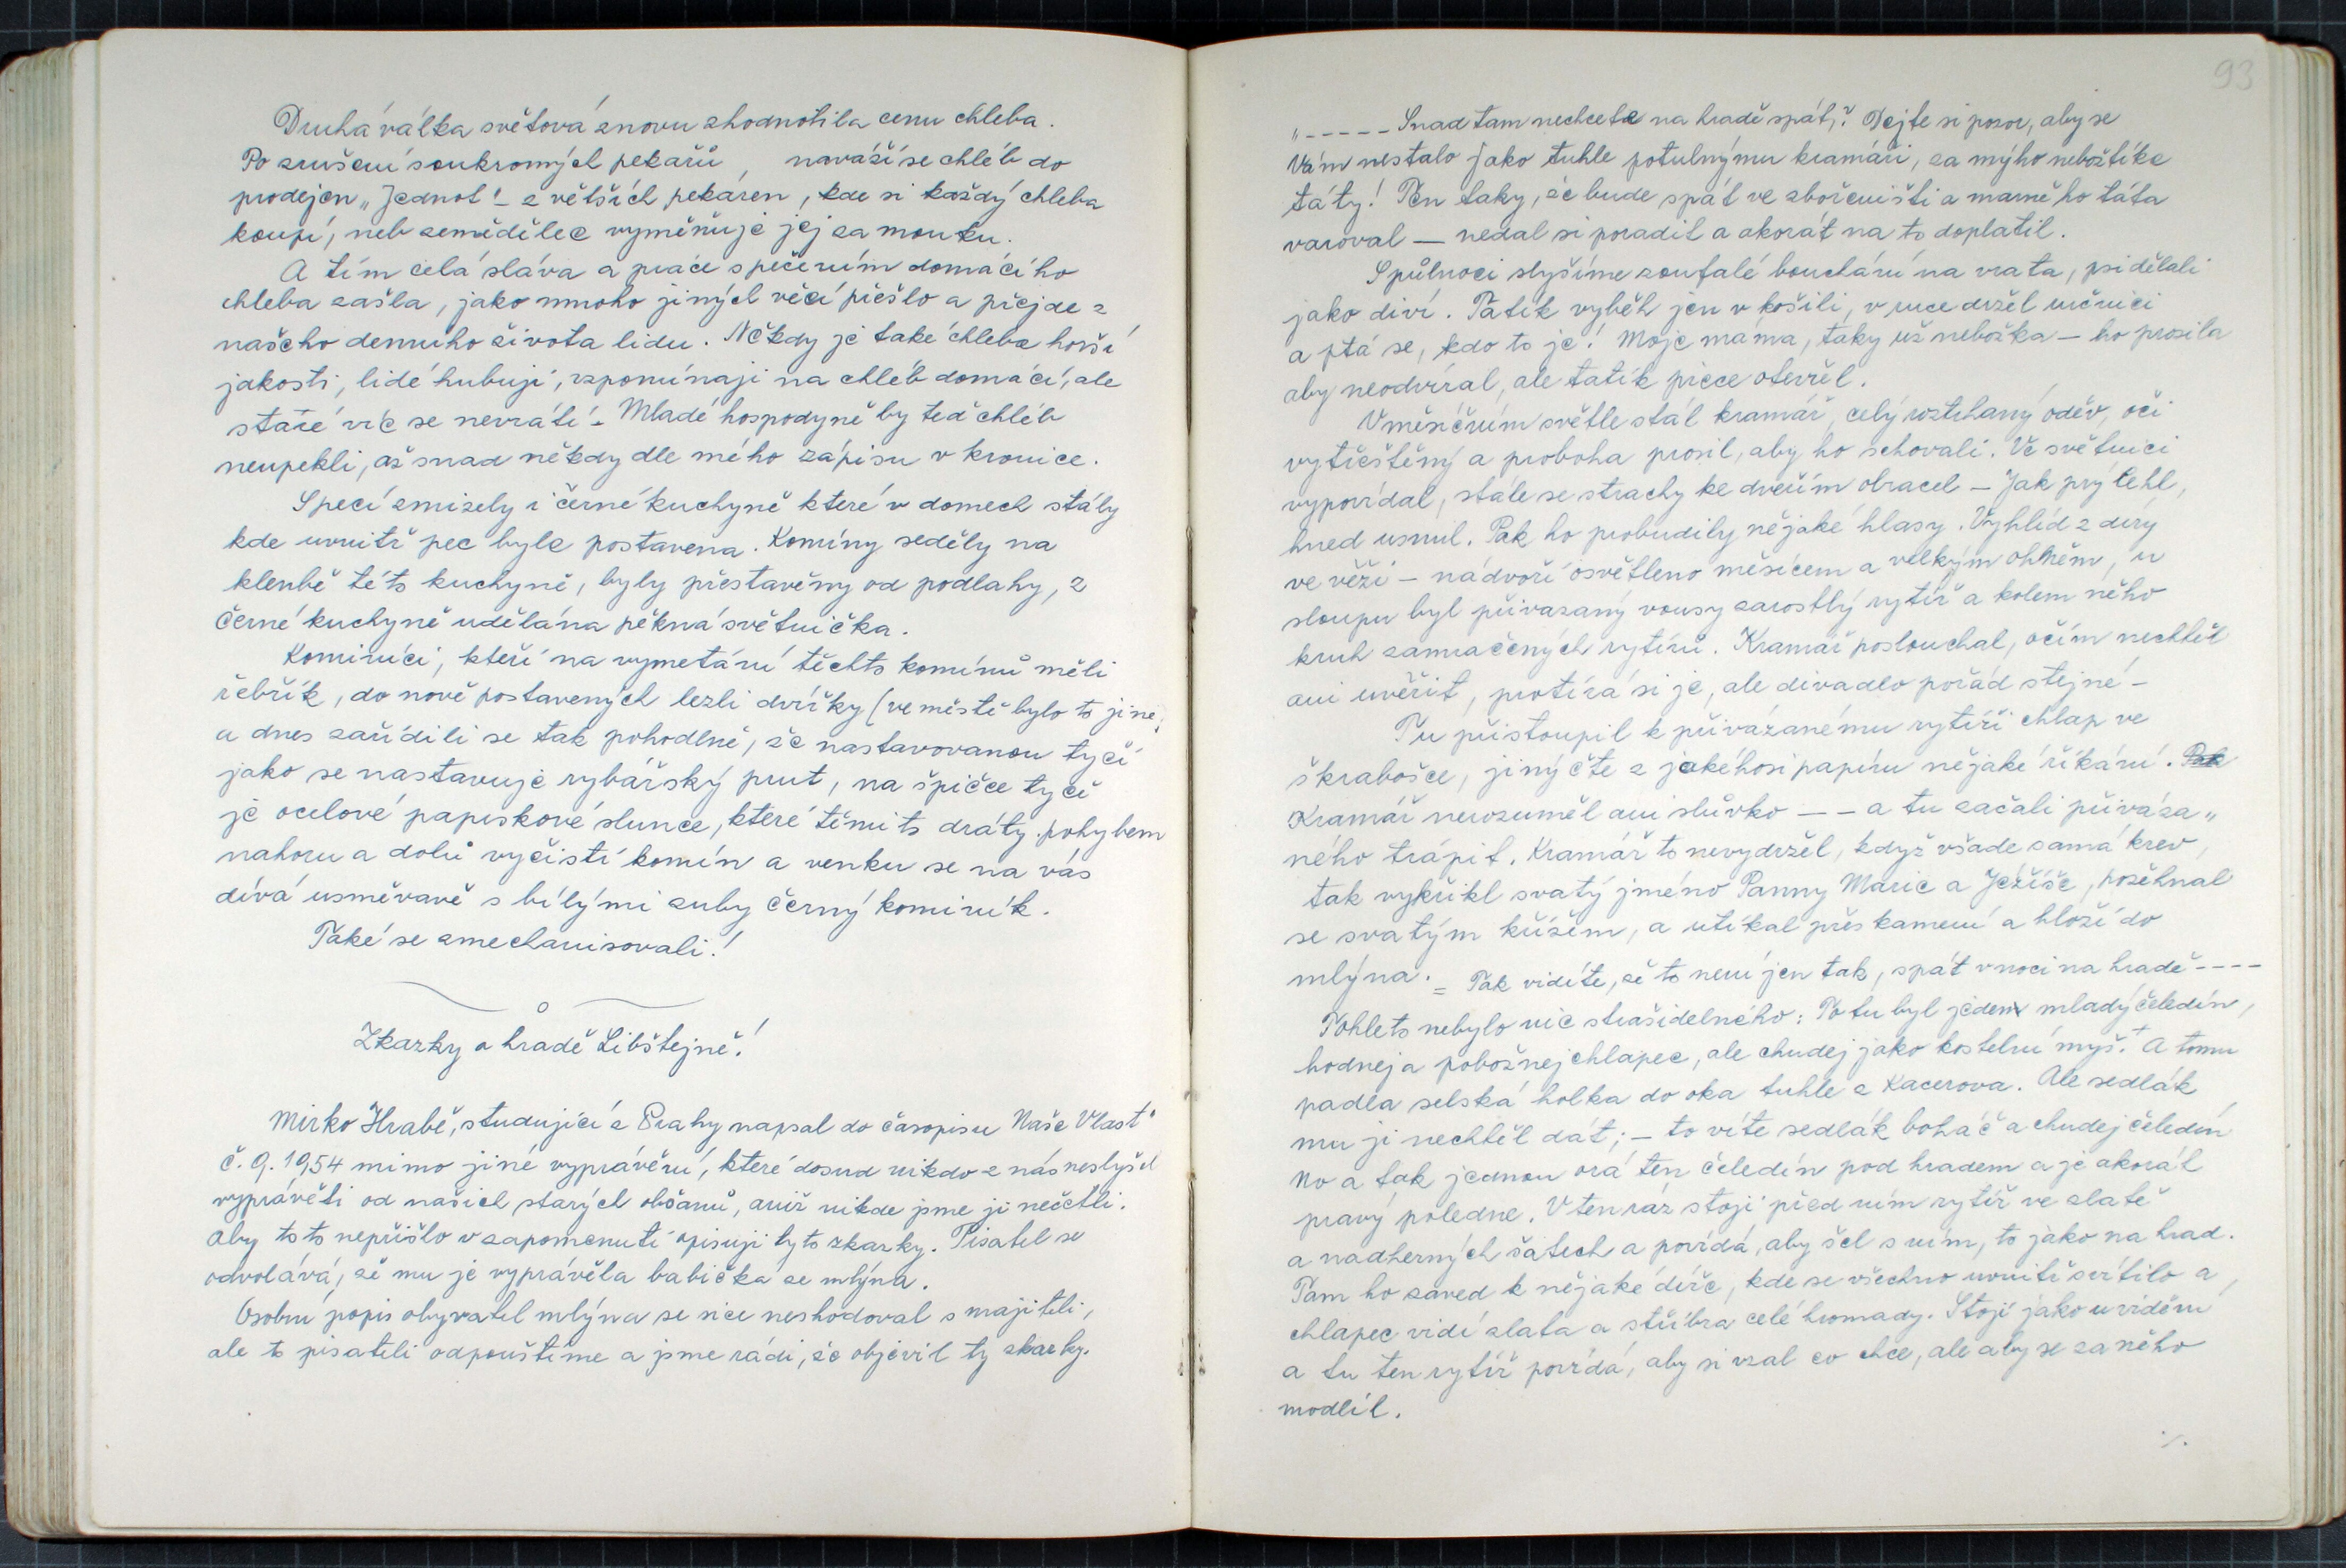 Druhá válka světová znovu zhodnotila cenu chleba.
Po zrušení soukromých pekařů, naváží se chléb do
prodejen „Jednot" - z větších pekáren, kde si každý chleba
koupí, neb zemědělec vyměňuje jej za mouku.
A tím celá sláva a práce s pečením domácího
chleba zašla, jako mnoho jiných věcí přešlo a přejde z
našeho denního života lidu. Někdy je také chleba horší
jakosti, lidé hubují, vzpomínají na chléb domácí, ale
staré víc se nevrátí. Mladé hospodyně by teď chléb
neupekli, až snad někdy dle mého zápisu v kronice.
S pecí zmizely i černé kuchyně které v domech stály
kde uvnitř pec byla postavena. Komíny seděly na
klenbě této kuchyně, byly přestavěny od podlahy, z
černé kuchyně udělána pěkná světnička.
Kominíci, kteří na vymetání těchto komínů měli
řebřík, do nově postavených lezli dvířky (ve městě bylo to jiné,
a dnes zařídili se tak pohodlně, že nastavovanou tyčí
jako se nastavuje rybářský prut, na špičce tyče
je ocelové papiskové slunce, které těmito dráty pohybem
nahoru a dolů vyčistí komín a venku se na vás
dívá usměvavě s bílými zuby černý kominík.
Také se zmechanisovali!
Zkazky o hradě Libštejně!
Mirko Hrabě, studující z Prahy napsal do časopisu Naše Vlast"
č. 9. 1954 mimo jiné vyprávění, které dosud nikdo z nás neslyšel
vyprávěti od našich starých občanů, aniž nikde jsme ji nečetli.
Aby toto nepřišlo v zapomenutí opisuji tyto zkazky. Pisatel se
odvolává, že mu je vyprávěla babička ze mlýna.
Osobní popis obyvatel mlýna se sice neshodoval s majiteli,
ale to pisateli odpouštíme a jsme rádi, že objevil ty zkazky.
93
„ ----- Snad tam nechcete na hradě spát,? Dejte si pozor, aby se
Vám nestalo jako tuhle potulnýmu kramáři, za mýho nebožtíka
táty! Ten taky, že bude spát ve zbořeništi a marně ho táta
varoval — nedal si poradit a akorát na to doplatil.
S půlnoci slyšíme zoufalé bouchání na vrata, psi dělali
jako diví. Tatík vyběh jen v košili, v ruce držel ručnici
a ptá se, kdo to je! Moje máma, taky už nebožka — ho prosila
aby neodvíral, ale tatík přece otevřel.
V měsíčním světle stál kramář, celý roztrhaný oděv, oči
vytřeštěný a proboha prosil, aby ho schovali. Ve světnici
vypovídal, stále se strachy ke dveřím obracel — Jak prý lehl,
hned usnul. Pak ho probudily nějaké hlasy. Vyhlíd z díry
ve věži — nádvoří osvětleno měsícem a velkým ohněm, u
sloupu byl přivazaný vousy zarostlý rytíř a kolem něho
kruh zamračených rytířů. Kramář poslouchal, očím nechtěl
ani uvěřit, protírá si je, ale divadlo pořád stejné —
Tu přistoupil k přivázanému rytíři chlap ve
škrabošce, jiný čte z jakéhosi papíru nějaké říkání. Pak
Kramář nerozuměl ani slůvko — — a tu začali přiváza„
ného trápit. Kramář to nevydržel, když všade samá krev,
tak vykřikl svatý jméno Panny Marie a Ježíše, požehnal
se svatým křížem, a utíkal přes kamení a hloží do
mlýna. = Tak vidíte, že to není jen tak, spát v noci na hradě ----
Tohleto nebylo nic strašidelného: To tu byl jeden mladý čeledín,
hodnej a pobožnej chlapec, ale chudej jako kostelní myš. A tomu
padla selská holka do oka tuhle z Kacerova. Ale sedlák
mu ji nechtěl dát; — to víte sedlák boháč a chudej čeledín
No a tak jednou orá ten čeledín pod hradem a je akorát
pravý poledne. V ten ráz stojí před ním rytíř ve zlatě
a nadherných šatech a povídá, aby šel s ním, to jako na hrad.
Tam ho zaved k nějaké díře, kde se všechno uvnitř svítilo a
chlapec vidí zlata a stříbra celé hromady. Stojí jako u vidění
a tu ten rytíř povídá, aby si vzal co chce, ale aby se za něho
modlil.
./.